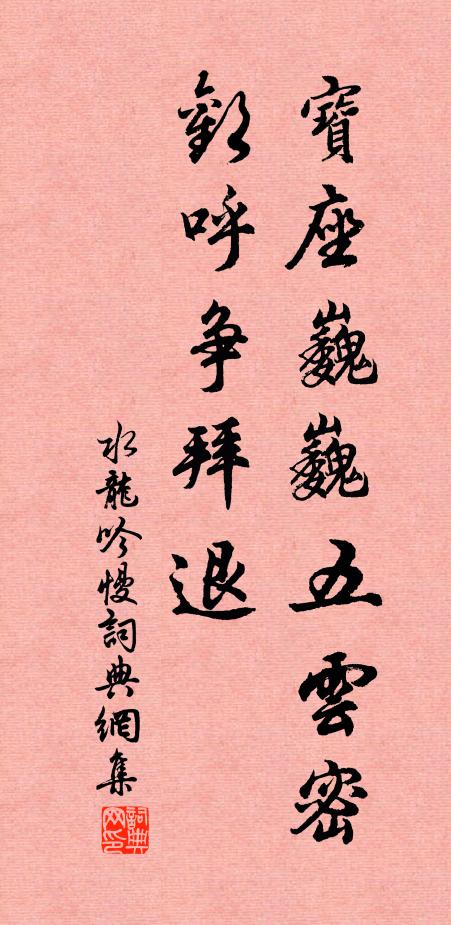 寶座巍巍五雲密
歡呼争拜退
水龍吟慢詞典網集
詞典网印